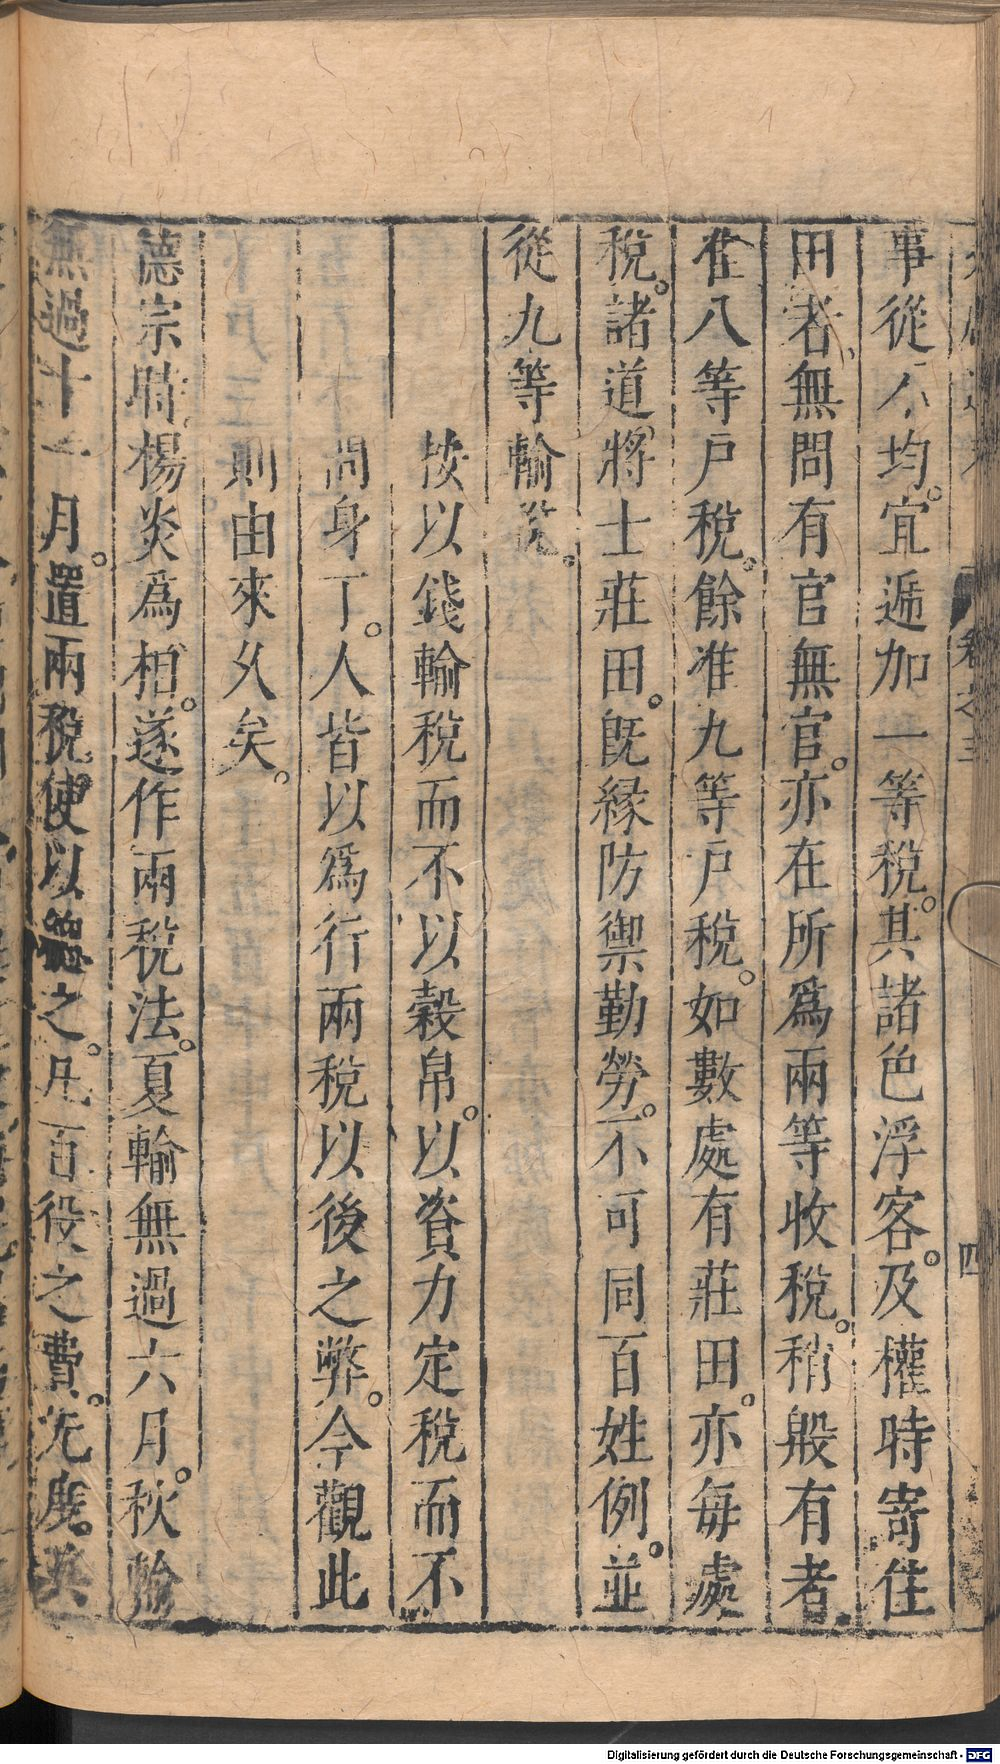 事從不均。宜遞加一等稅。其諸色浮客。及權時寄住
田者、無問有官無官。亦在所爲兩等收稅。稍殷有者
准八等戶稅。餘准九等戶稅。如數處有莊田。亦每處
稅。諸道將士莊田。旣緣防禦勤勞。不可同百姓例。並
從九等輸稅。
按以錢輸稅而不以穀帛。以資力定稅而不
問身丁。人皆以爲行兩稅以後之弊。今觀此
則由來久矣。
德宗時、楊炎爲相。遂作兩稅法。夏輸無過六月。秋輸
無過十一月。置兩稅使以總之。凡百役之費。先度其
卷之三
四
Digitalisierung gefördert durch die Deutsche Forschungsgemeinschaft - DFG